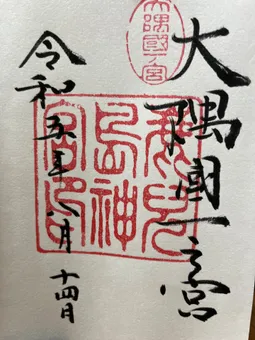 大隅國一ノ宮
大隅國一之宮
鹿兒
島神
宮印
令和五年八月
十四日